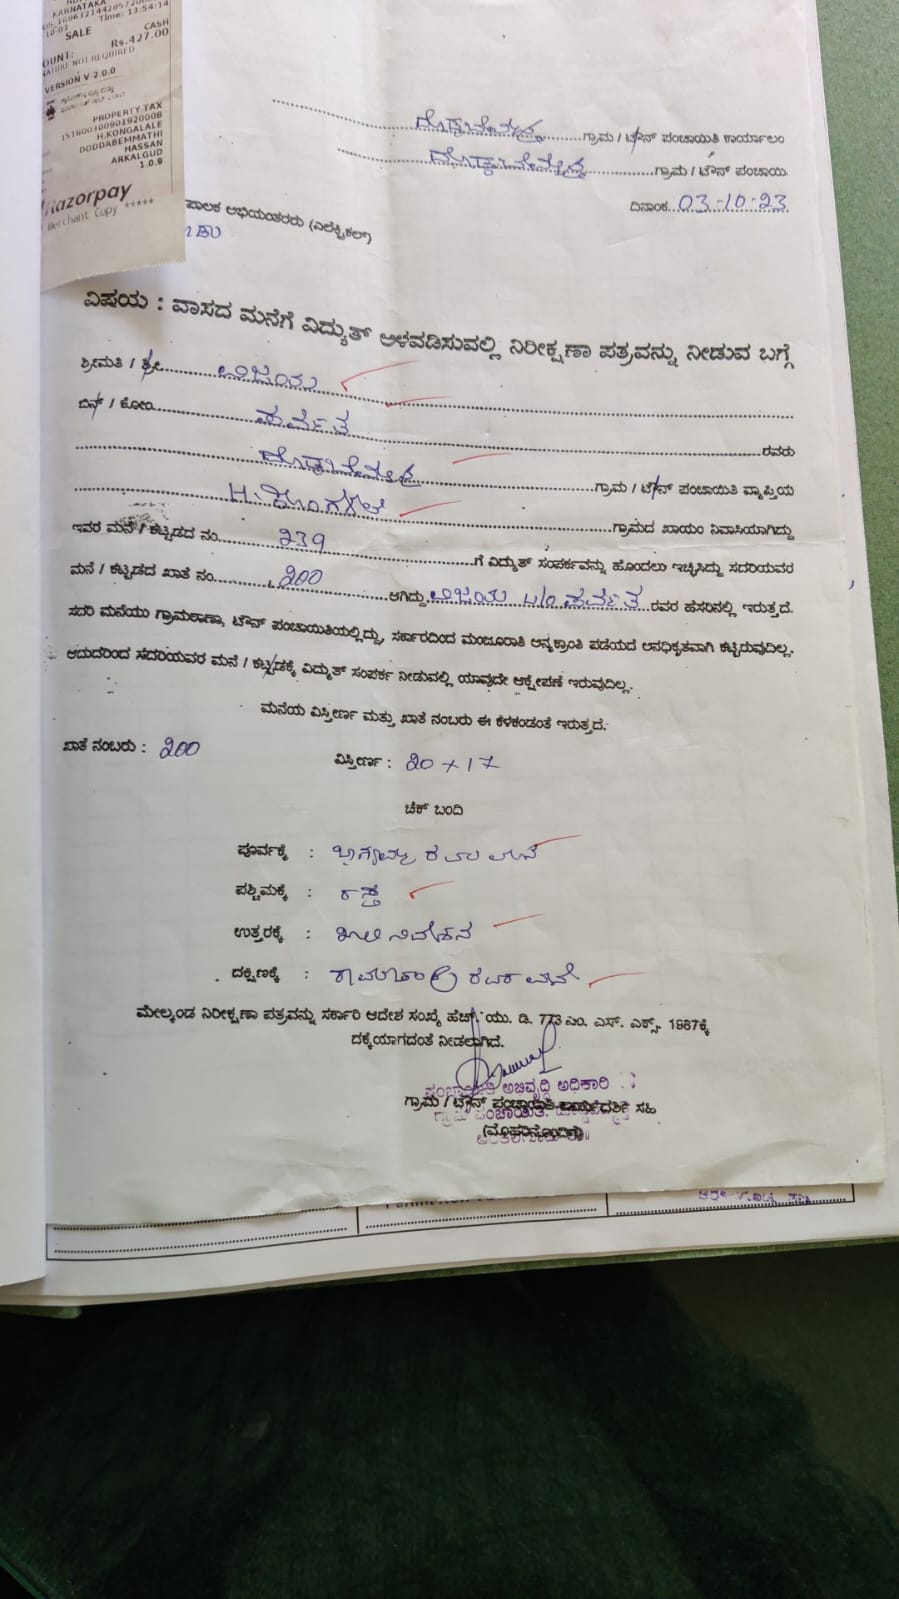 KARNATAKA
Time: 13:54:14
SALE CASH
Rs.427.00
NOT REQUIRED
VERSION V-2.0.0
PROPERTY TAX
151600300901920008
H.KONGALALE
DODDABEMMATHI
HASSAN
ARKALGUD
1.0.9
Razorpay
Merchant Copy *****
ಗ್ರಾಮ / ಟೌನ್ ಪಂಚಾಯಿತಿ ಕಾರ್ಯಾಲಂ
ಗ್ರಾಮ / ಟೌನ್ ಪಂಚಾಯಿ
ದಿನಾಂಕ 03-10-23
ಪಾಲಕ ಅಭಿಯಂತರರು (ಎಲೆಕ್ಟ್ರಿಕಲ್)
ವಿಷಯ : ವಾಸದ ಮನೆಗೆ ವಿದ್ಯುತ್ ಅಳವಡಿಸುವಲ್ಲಿ ನಿರೀಕ್ಷಣಾ ಪತ್ರವನ್ನು ನೀಡುವ ಬಗ್ಗೆ
ಶ್ರೀಮತಿ / ಶ್ರೀ
ಬಿನ್ / ಕೋಂ ಪರ್ವತ ರವರು
ಗ್ರಾಮ / ಟೌನ್ ಪಂಚಾಯಿತಿ ವ್ಯಾಪ್ತಿಯ
H. ಕೊಂಗಳಲೆ ಗ್ರಾಮದ ಖಾಯಂ ನಿವಾಸಿಯಾಗಿದ್ದು
ಇವರ ಮನೆ / ಕಟ್ಟಡದ ನಂ. 239 ಗೆ ವಿದ್ಯುತ್ ಸಂಪರ್ಕವನ್ನು ಹೊಂದಲು ಇಚ್ಛಿಸಿದ್ದು ಸದರಿಯವರ
ಮನೆ / ಕಟ್ಟಡದ ಖಾತೆ ನಂ. 200 ಆಗಿದ್ದು ಪರ್ವತ ರವರ ಹೆಸರಿನಲ್ಲಿ ಇರುತ್ತದೆ.
ಸದರಿ ಮನೆಯು ಗ್ರಾಮಠಾಣಾ, ಟೌನ್ ಪಂಚಾಯಿತಿಯಲ್ಲಿದ್ದು, ಸರ್ಕಾರದಿಂದ ಮಂಜೂರಾತಿ ಅನ್ಯಕ್ರಾಂತಿ ಪಡೆಯದೆ ಅನಧಿಕೃತವಾಗಿ ಕಟ್ಟಿರುವುದಿಲ್ಲ.
ಆದುದರಿಂದ ಸದರಿಯವರ ಮನೆ / ಕಟ್ಟಡಕ್ಕೆ ವಿದ್ಯುತ್ ಸಂಪರ್ಕ ನೀಡುವಲ್ಲಿ ಯಾವುದೇ ಆಕ್ಷೇಪಣೆ ಇರುವುದಿಲ್ಲ.
ಮನೆಯ ವಿಸ್ತೀರ್ಣ ಮತ್ತು ಖಾತೆ ನಂಬರು ಈ ಕೆಳಕಂಡಂತೆ ಇರುತ್ತದೆ.
ಖಾತೆ ನಂಬರು : 200
ವಿಸ್ತೀರ್ಣ : 20 + 17
ಚೆಕ್ ಬಂದಿ
ಪೂರ್ವಕ್ಕೆ : ಭಾಗ್ಯಮ್ಮ ರವರ ಮನೆ
ಪಶ್ಚಿಮಕ್ಕೆ : ರಸ್ತೆ
ಉತ್ತರಕ್ಕೆ : ಖಾಲಿ ನಿವೇಶನ
ದಕ್ಷಿಣಕ್ಕೆ : ರವರ ಮನೆ
ಮೇಲ್ಕಂಡ ನಿರೀಕ್ಷಣಾ ಪತ್ರವನ್ನು ಸರ್ಕಾರಿ ಆದೇಶ ಸಂಖ್ಯೆ ಹೆಚ್. ಯು. ಡಿ. 773 ಎಂ. ಎಸ್. ಎಕ್ಸ್. 1987ಕ್ಕೆ
ದಕ್ಕೆಯಾಗದಂತೆ ನೀಡಲಾಗಿದೆ.
ಪಂಚಾಯಿತಿ ಅಭಿವೃದ್ಧಿ ಅಧಿಕಾರಿ
ಗ್ರಾಮ / ಟೌನ್ ಪಂಚಾಯಿತಿ ಕಾರ್ಯದರ್ಶಿ ಸಹಿ
(ಮೊಹರಿನೊಂದಿಗೆ)